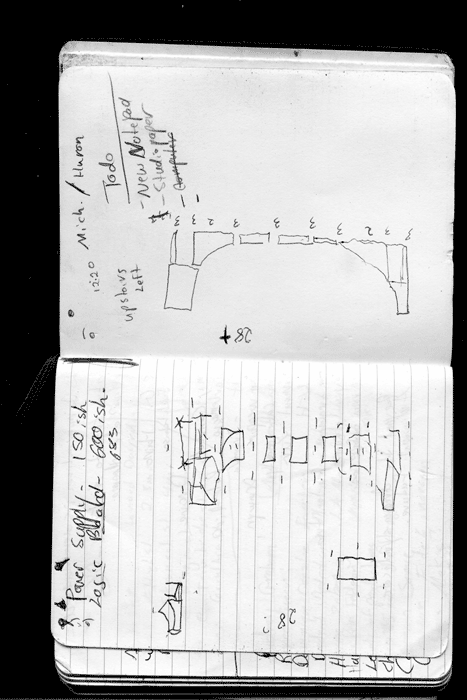 12:20 Mich. / Huron
Todo
- New Notepad
- Studio paper
- Computer
-
upstairs
Left
3 3 2 3 3 3 2 3
28 +
Power Supply - 150 ish
Logic Board - 600 ish.
683
28 ?